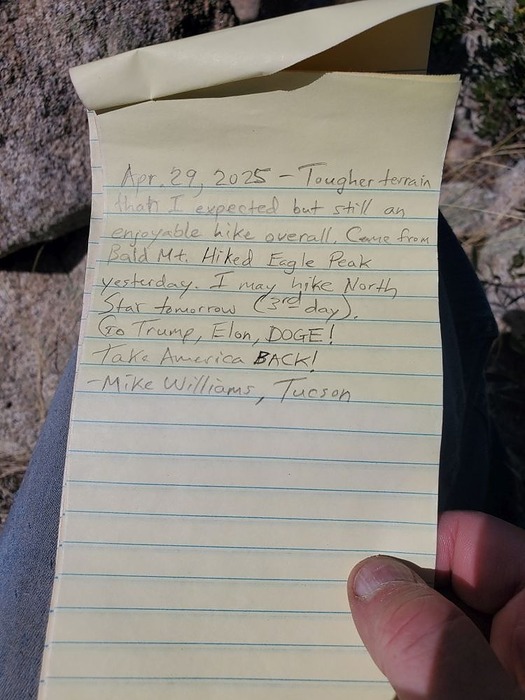 Apr. 29, 2025 - Tougher terrain
than I expected but still an
enjoyable hike overall. Came from
Bald Mt. Hiked Eagle Peak
yesterday. I may hike North
Star tomorrow (3rd day).
Go Trump, Elon, DOGE!
Take America BACK!
-Mike Williams, Tucson